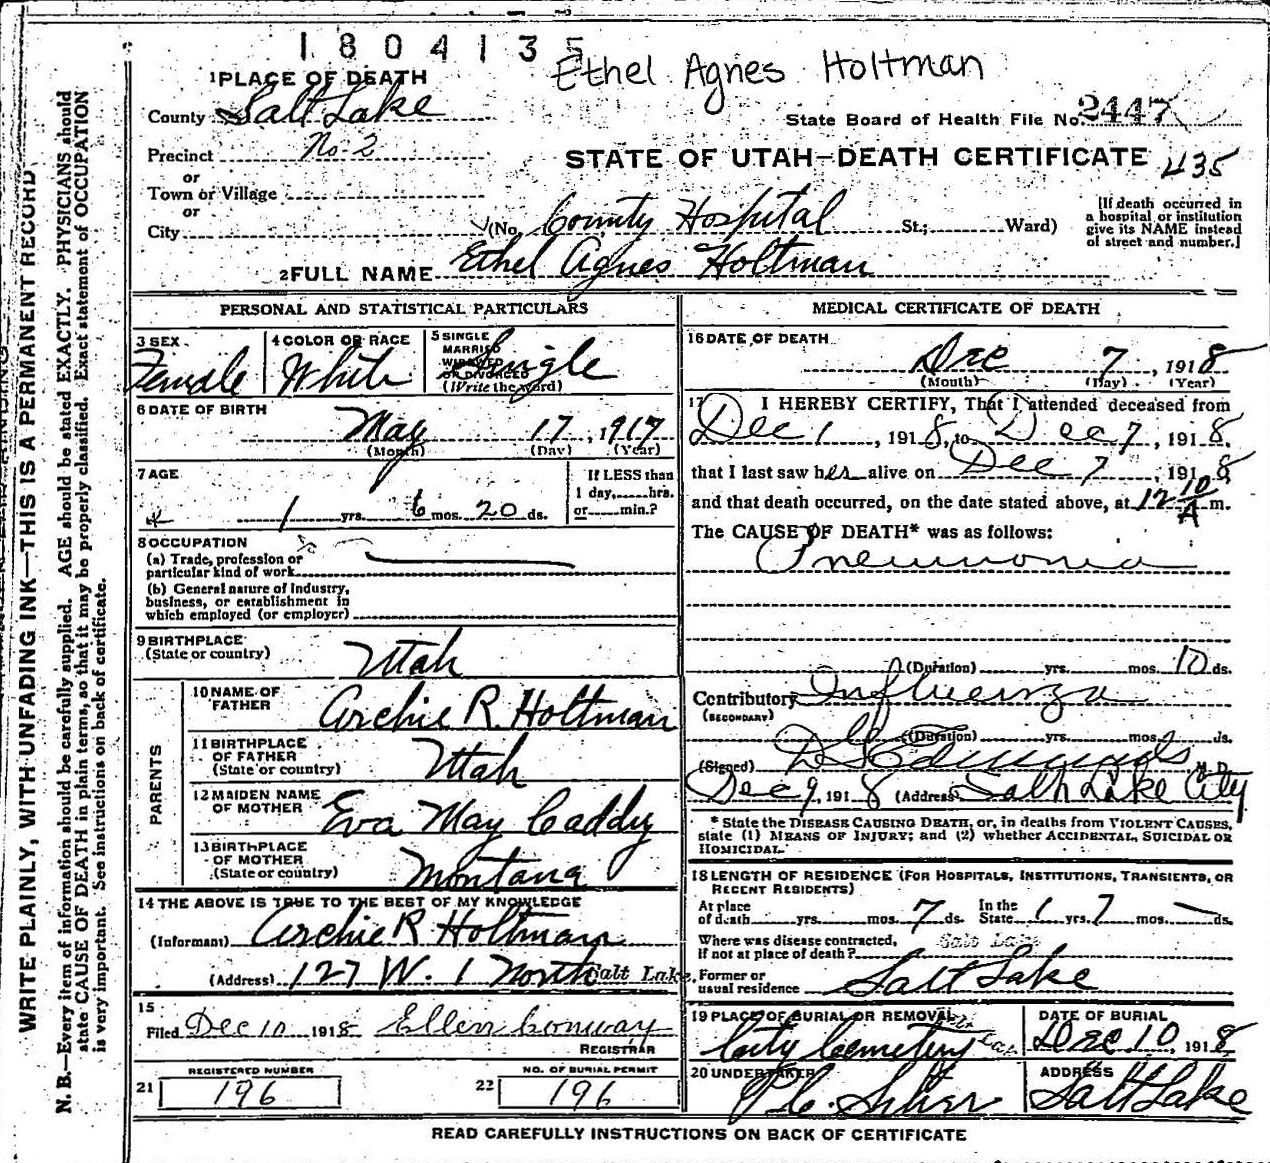 1804135
Ethel Agnes Holtman
1 PLACE OF DEATH
County Salt Lake
State Board of Health File No. 2447
Precinct No. 2
STATE OF UTAH—DEATH CERTIFICATE 435
or
Town or Village
or
City (No. County Hospital St.; Ward)
[If death occurred in
a hospital or institution
give its NAME instead
of street and number.]
2 FULL NAME Ethel Agnes Holtman
PERSONAL AND STATISTICAL PARTICULARS
3 SEX
Female
4 COLOR OR RACE
White
5 SINGLE
MARRIED
WIDOWED
OR DIVORCED
(Write the word)
Single
6 DATE OF BIRTH
May 17, 1917
(Month) (Day) (Year)
7 AGE
1 yrs. 6 mos. 20 ds.
If LESS than
1 day, hrs.
or min.?
8 OCCUPATION
(a) Trade, profession or
particular kind of work
(b) General nature of industry,
business, or establishment in
which employed (or employer)
9 BIRTHPLACE
(State or country)
Utah
PARENTS
10 NAME OF
FATHER
Archie R. Holtman
11 BIRTHPLACE
OF FATHER
(State or country)
Utah
12 MAIDEN NAME
OF MOTHER
Eva May Caddy
13 BIRTHPLACE
OF MOTHER
(State or country)
Montana
14 THE ABOVE IS TRUE TO THE BEST OF MY KNOWLEDGE
(Informant) Archie R Holtman
(Address) 127 W. 1 North Salt Lake.
15
Filed Dec 10 1918 Ellen Conway
REGISTRAR
REGISTERED NUMBER
21 196
NO. OF BURIAL PERMIT
22 196
MEDICAL CERTIFICATE OF DEATH
16 DATE OF DEATH
Dec 7, 1918
(Month) (Day) (Year)
17 I HEREBY CERTIFY, That I attended deceased from
Dec 1, 1918, to Dec 7, 1918.
that I last saw her alive on Dec 7, 1918
and that death occurred, on the date stated above, at 12 10/A m.
The CAUSE OF DEATH* was as follows:
Pneumonia
(Duration) yrs. mos. 10 ds.
Contributory Influenza
(SECONDARY)
(Duration) yrs. mos. ds.
(Signed) Edmunds M.D.
Dec 9, 1918 (Address) Salt Lake City
* State the DISEASE CAUSING DEATH, or, in deaths from VIOLENT CAUSES,
state (1) MEANS OF INJURY; and (2) whether ACCIDENTAL, SUICIDAL OR
HOMICIDAL.
18 LENGTH OF RESIDENCE (FOR HOSPITALS, INSTITUTIONS, TRANSIENTS, OR
RECENT RESIDENTS)
At place
of death yrs. mos. 7 ds.
In the
State 1 yrs. 7 mos. — ds.
Where was disease contracted,
if not at place of death? Salt Lake
Former or
usual residence Salt Lake
19 PLACE OF BURIAL OR REMOVAL
City Cemetery
DATE OF BURIAL
Dec. 10, 1918
20 UNDERTAKER
ADDRESS
Salt Lake
READ CAREFULLY INSTRUCTIONS ON BACK OF CERTIFICATE
WRITE PLAINLY, WITH UNFADING INK—THIS IS A PERMANENT RECORD
N. B.—Every item of information should be carefully supplied. AGE should be stated EXACTLY. PHYSICIANS should
state CAUSE OF DEATH in plain terms, so that it may be properly classified. Exact statement of OCCUPATION
is very important. See instructions on back of certificate.